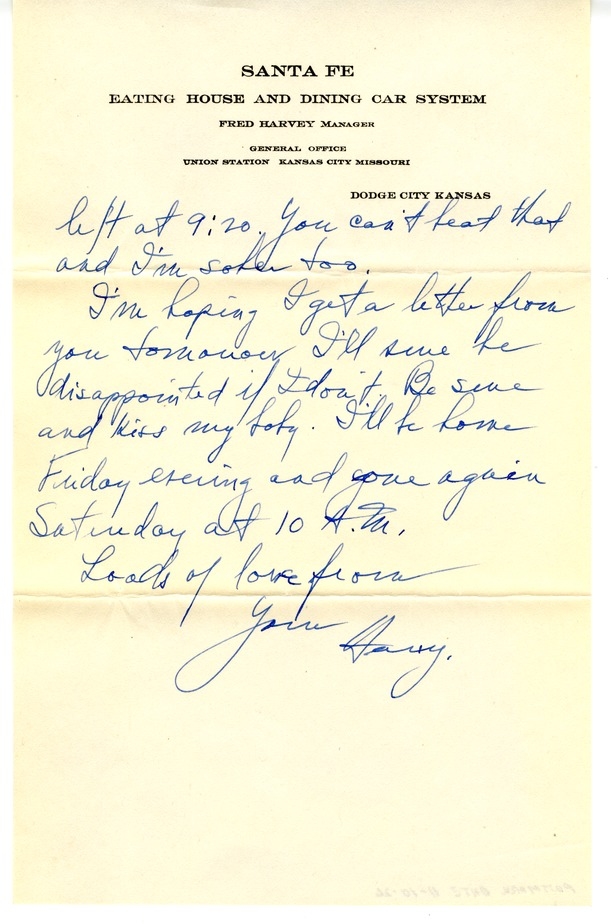 SANTA FE
EATING HOUSE AND DINING CAR SYSTEM
FRED HARVEY MANAGER
GENERAL OFFICE
UNION STATION KANSAS CITY MISSOURI
DODGE CITY KANSAS
left at 9:20. You can't beat that
and I'm sober too.
I'm hoping I get a letter from
you tomorrow I'll sure be
disappointed if I don't. Be sure
and kiss my baby. I'll be home
Friday evening and gone again
Saturday at 10 A.M.
Loads of love from
Your Harry.